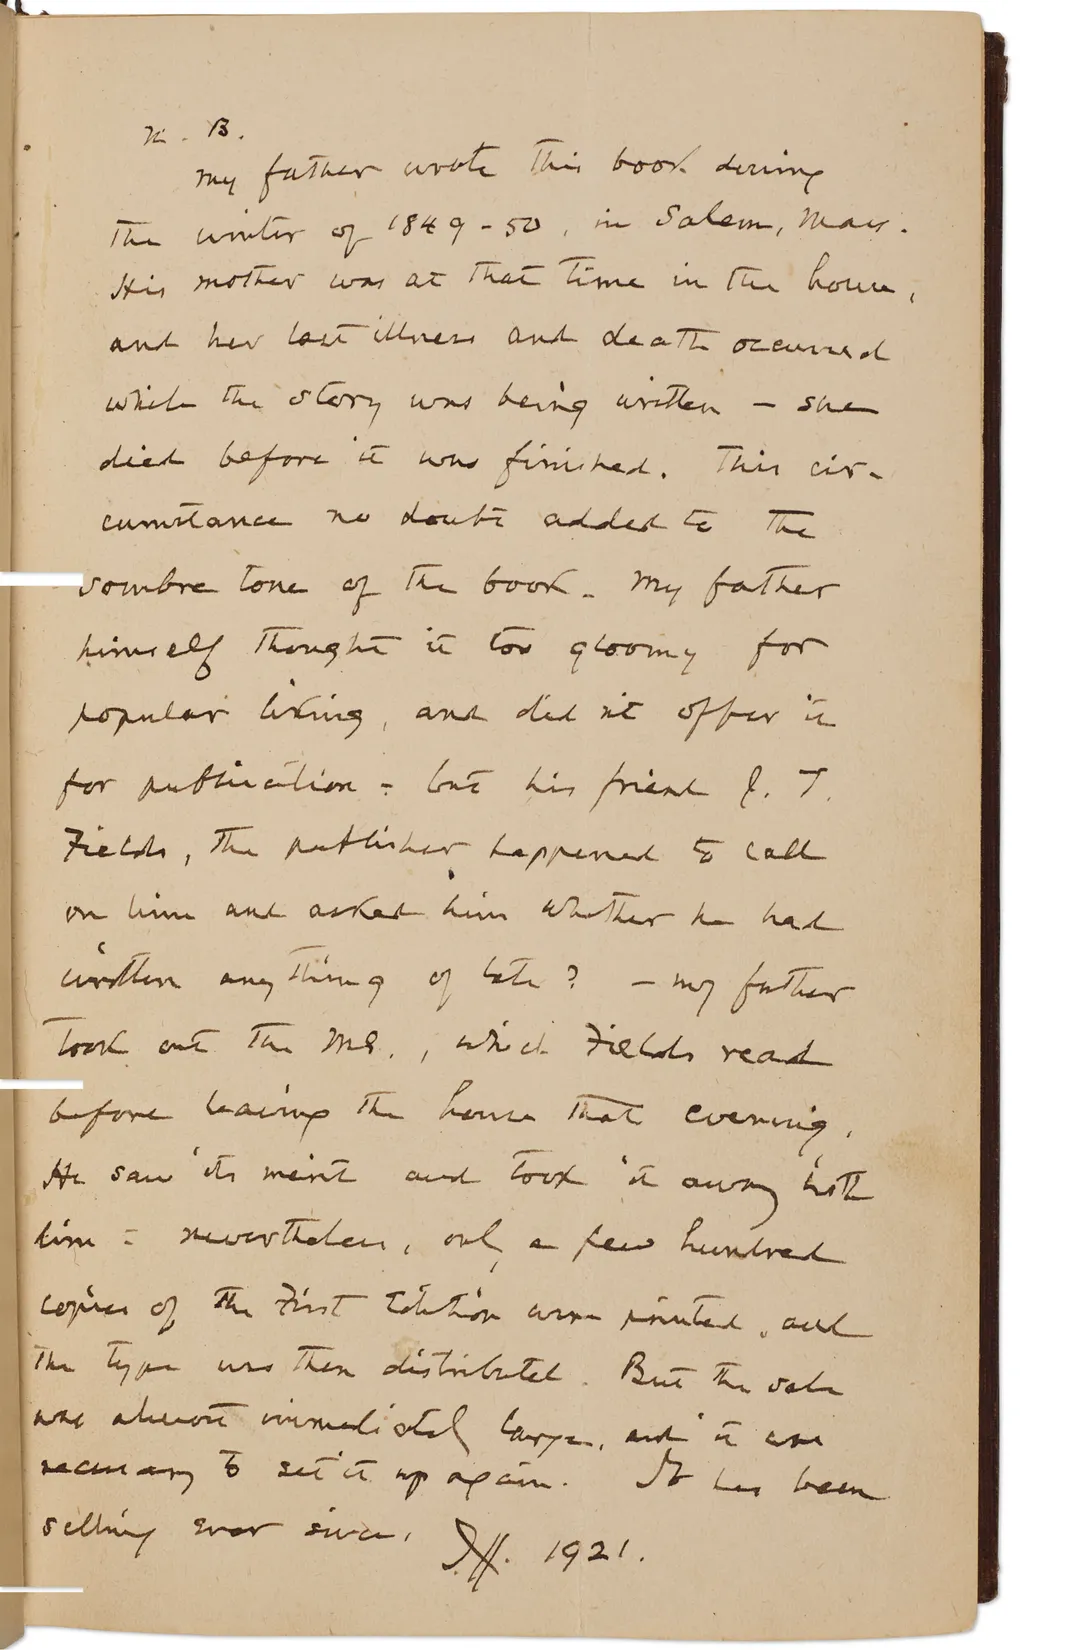 N. B.
My father wrote this book during
the winter of 1849-50, in Salem, Mass.
His mother was at that time in the house,
and her last illness and death occurred
while the story was being written — she
died before it was finished. This cir-
cumstance no doubt added to the
sombre tone of the book. My father
himself thought it too gloomy for
popular liking, and did not offer it
for publication - but his friend J. T.
Fields, the publisher happened to call
on him and asked him whether he had
written anything of late? — my father
took out the MS., which Fields read
before leaving the house that evening.
He saw its merit and took it away with
him - nevertheless, only a few hundred
copies of the First Edition were printed, and
the type was then distributed. But the sale
was almost immediately large, and it was
necessary to set it up again. It has been
selling ever since.
J.H. 1921.